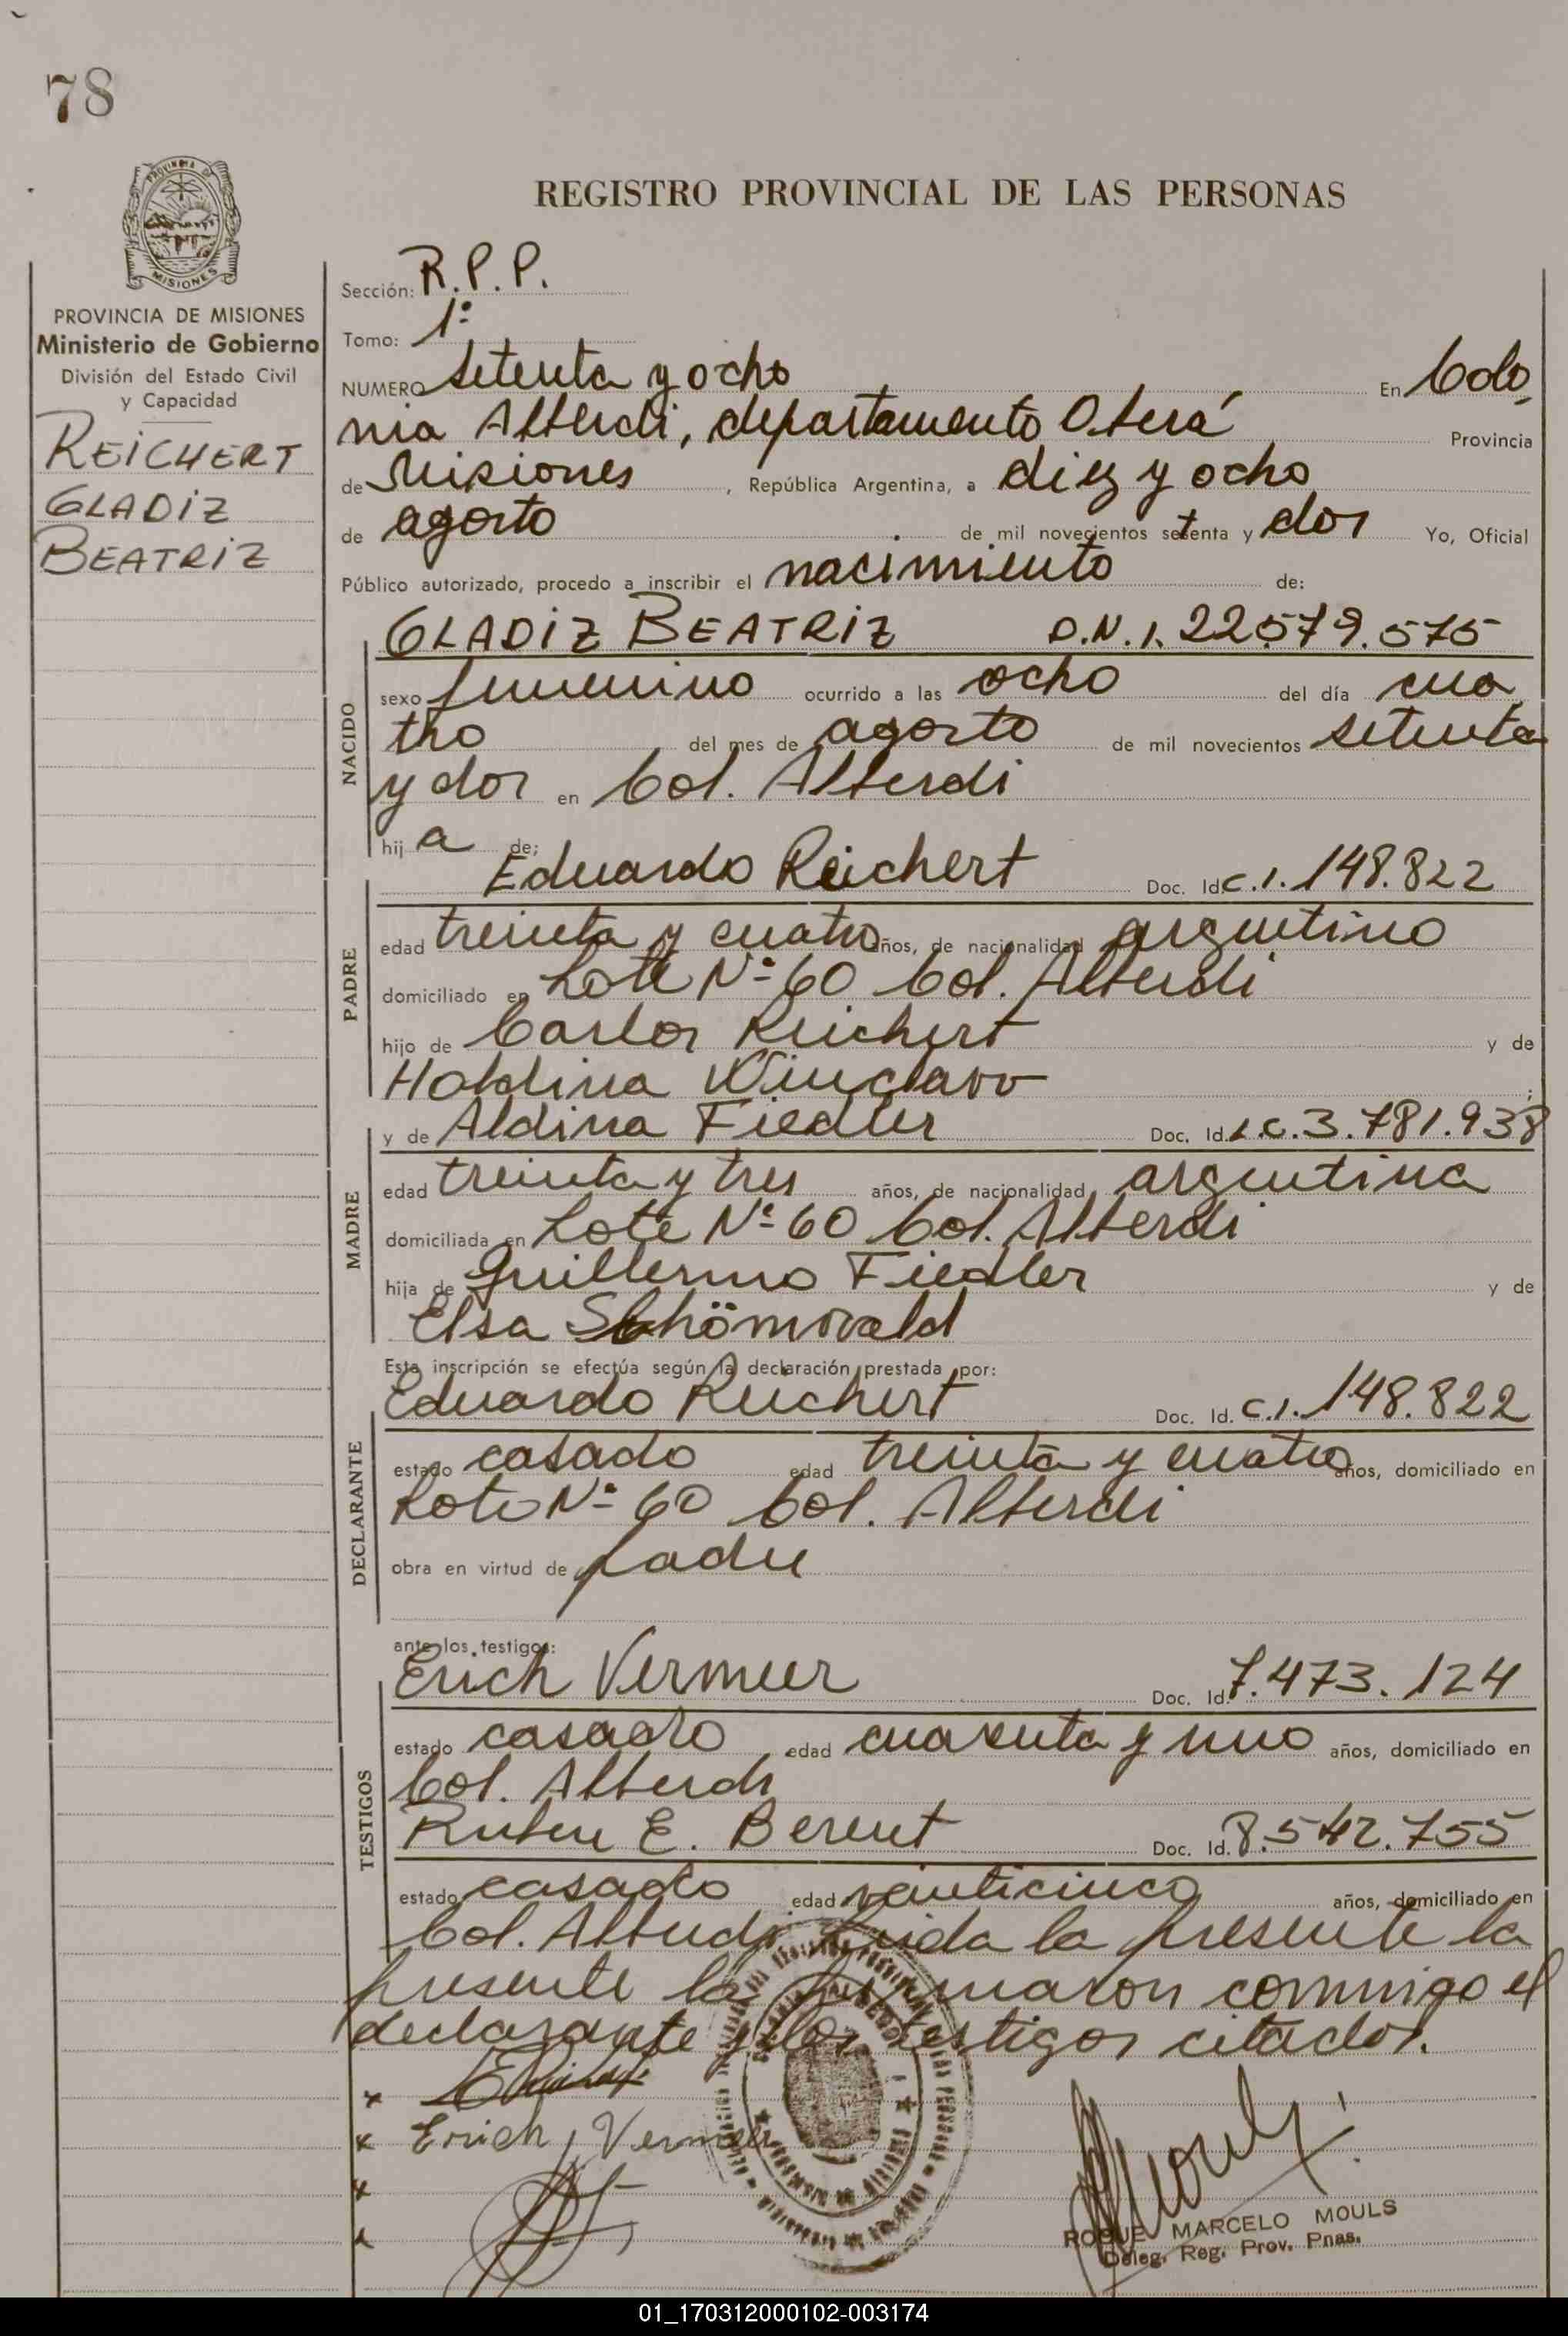 78
PROVINCIA DE
MISIONES
PROVINCIA DE MISIONES
Ministerio de Gobierno
División del Estado Civil
y Capacidad
REICHERT
GLADIZ
BEATRIZ
REGISTRO PROVINCIAL DE LAS PERSONAS
Sección: R.P.P.
Tomo: 1º
NUMERO setenta y ocho En Colo
nia Alberdi, departamento Oberá Provincia
de Misiones, República Argentina, a diez y ocho
de agosto de mil novecientos setenta y dos Yo, Oficial
Público autorizado, procedo a inscribir el nacimiento de:
NACIDO
GLADIZ BEATRIZ D.N.I. 22.579.575
sexo femenino ocurrido a las ocho del día cua
tro del mes de agosto de mil novecientos setenta
y dos en Col. Alberdi
hija de:
PADRE
Eduardo Reichert Doc. Id. C.I. 148.822
edad treinta y cuatro años, de nacionalidad argentino
domiciliado en Lote Nº 60 Col. Alberdi
hijo de Carlos Reichert y de
Holdina Winclavv;
MADRE
y de Aldina Fiedler Doc. Id. L.C. 3.781.938
edad treinta y tres años, de nacionalidad argentina
domiciliada en Lote Nº 60 Col. Alberdi
hija de Guillermo Fiedler y de
Elsa Schömwald
Esta inscripción se efectúa según la declaración prestada por:
DECLARANTE
Eduardo Reichert Doc. Id. C.I. 148.822
estado casado edad treinta y cuatro años, domiciliado en
Lote Nº 60 Col. Alberdi
obra en virtud de padre
ante los testigos:
TESTIGOS
Erich Vermeer Doc. Id. 7.473.124
estado casado edad cuarenta y uno años, domiciliado en
Col. Alberdi
Ruben E. Berent Doc. Id. 8.542.755
estado casado edad veinticinco años, domiciliado en
Col. Alberdi Leida la presente la
presente la firmaron conmigo el
declarante y los testigos citados.
x
x Erich Vermeer
x
x
ROQUE MARCELO MOULS
Deleg. Reg. Prov. Pnas.
01_170312000102-003174